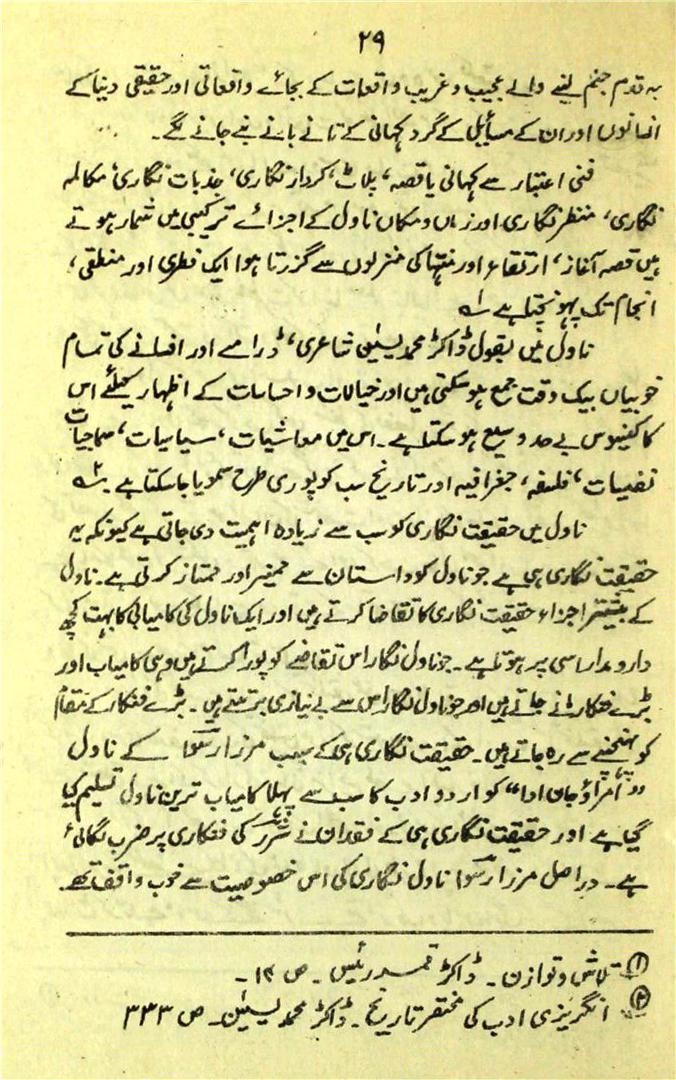 ۲۹
بہ قدم جنم لینے والے عجیب و غریب واقعات کے بجائے واقعاتی اور حقیقی دنیا کے
انسانوں اور ان کے مسائل کے گرد کہانی کے تانے بانے بنے جانے لگے۔
فنی اعتبار سے کہانی یا قصہ، پلاٹ، کردار نگاری، جذبات نگاری، مکالمہ
نگاری، منظر نگاری اور زماں و مکاں ناول کے اجزائے ترکیبی میں شمار ہوتے
ہیں قصہ آغاز، ارتقاء اور منتہا کی منزلوں سے گزرتا ہوا ایک فطری اور منطقی،
انجام تک پہونچتا ہے ۱؎
ناول میں بقول ڈاکٹر محمد یسٰین شاعری، ڈرامے اور افسانے کی تمام
خوبیاں بیک وقت جمع ہو سکتی ہیں اور خیالات و احساسات کے اظہار کیلئے اس
کا کینوس بے حد وسیع ہو سکتا ہے۔ اس میں معاشیات، سیاسیات، سماجیات
نفسیات، فلسفہ، جغرافیہ اور تاریخ سب کو پوری طرح سمویا جا سکتا ہے۔ ۲؎
ناول میں حقیقت نگاری کو سب سے زیادہ اہمیت دی جاتی ہے کیونکہ یہ
حقیقت نگاری ہی ہے جو ناول کو داستان سے ممیز اور ممتاز کرتی ہے۔ ناول
کے بیشتر اجزاء حقیقت نگاری کا تقاضا کرتے ہیں اور ایک ناول کی کامیابی کا بہت کچھ
دارومدار اسی پر ہوتا ہے۔ جو ناول نگار اس تقاضے کو پورا کرتے ہیں وہی کامیاب اور
بڑے فنکار مانے جاتے ہیں اور جو ناول نگار اس سے بے نیازی برتتے ہیں۔ بڑے فنکار کے مقام
کو پہنچنے سے رہ جاتے ہیں۔ حقیقت نگاری ہی کے سبب مرزا رسوؔا کے ناول
”امراؤ جان ادا“ کو اردو ادب کا سب سے پہلا کامیاب ترین ناول تسلیم کیا
گیا ہے اور حقیقت نگاری ہی کے فقدان نے شررؔ کی فنکاری پر ضرب لگائی
ہے۔ دراصل مرزا رسوؔا ناول نگاری کی اس خصوصیت سے خوب واقف تھے۔
① تلاش و توازن۔ ڈاکٹر قمر رئیس۔ ص ۱۴۔
② انگریزی ادب کی مختصر تاریخ۔ ڈاکٹر محمد یسٰین۔ ص ۳۳۳